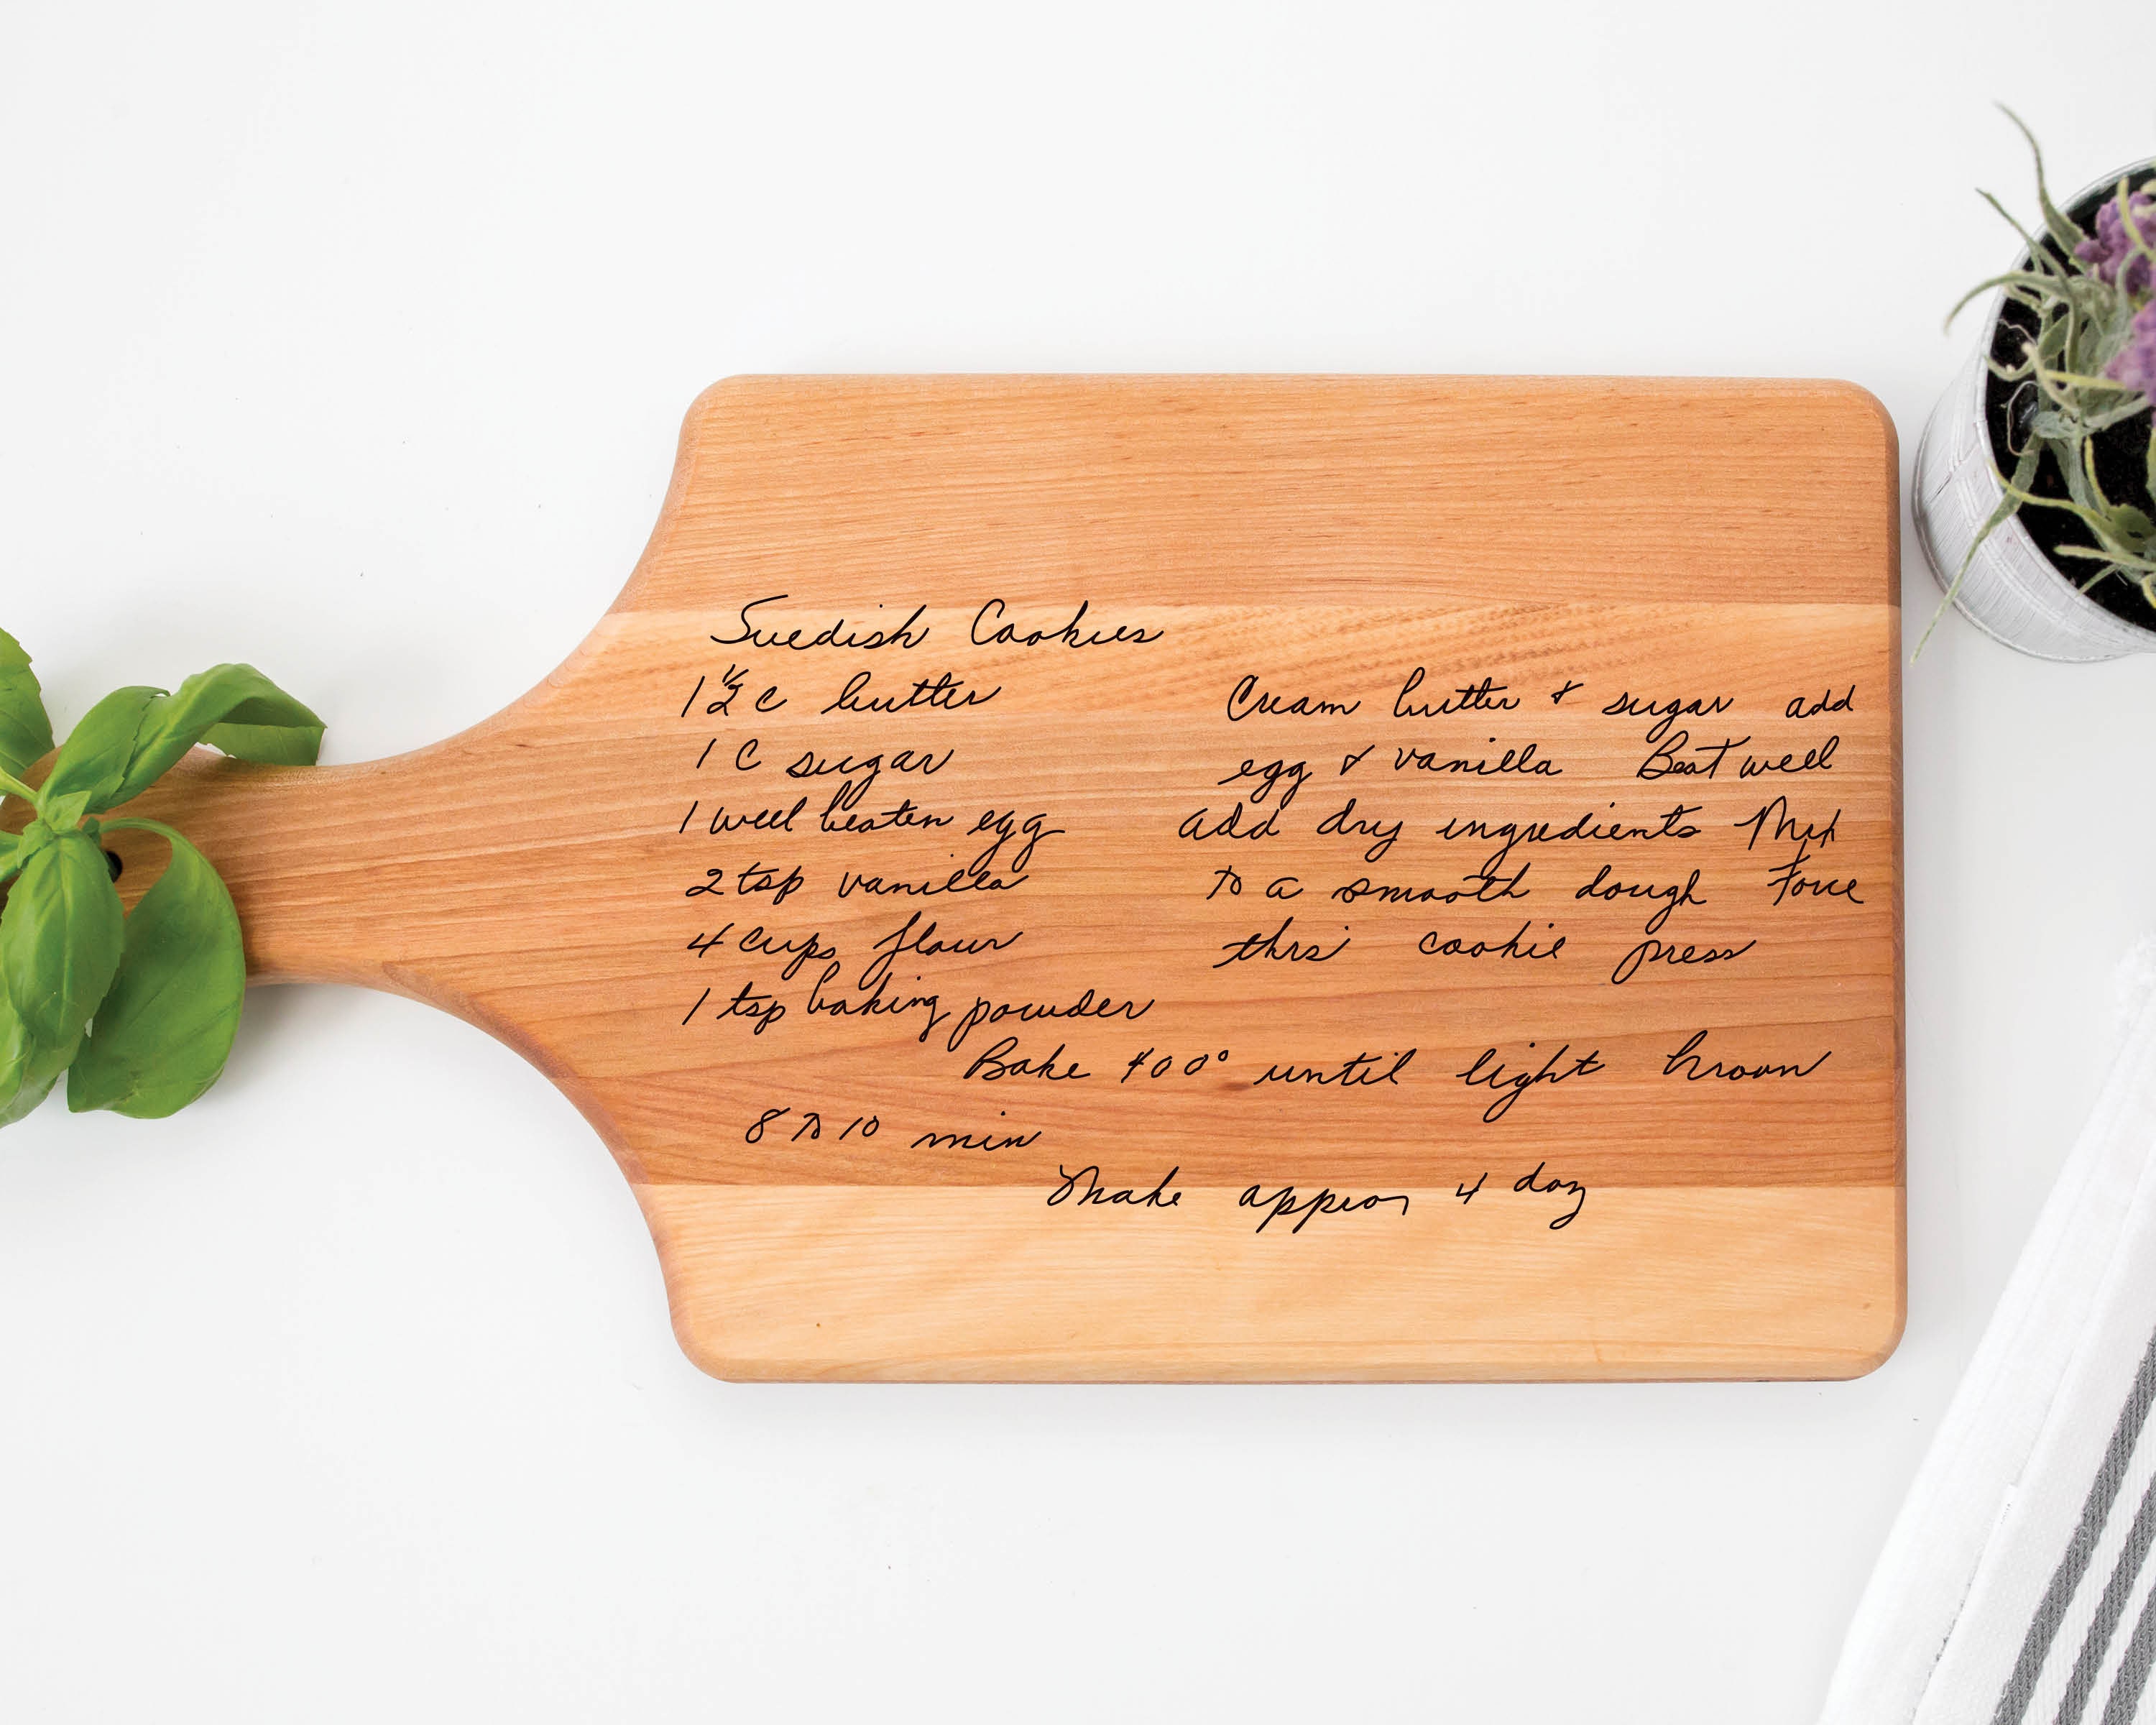 Swedish Cookies
1 ½ c butter
1 C sugar
1 well beaten egg
2 tsp vanilla
4 cups flour
1 tsp baking powder
Cream butter & sugar add
egg & vanilla Beat well
add dry ingredients Mix
to a smooth dough Force
thro' cookie press
Bake 400° until light brown
8 to 10 min
Make approx 4 doz